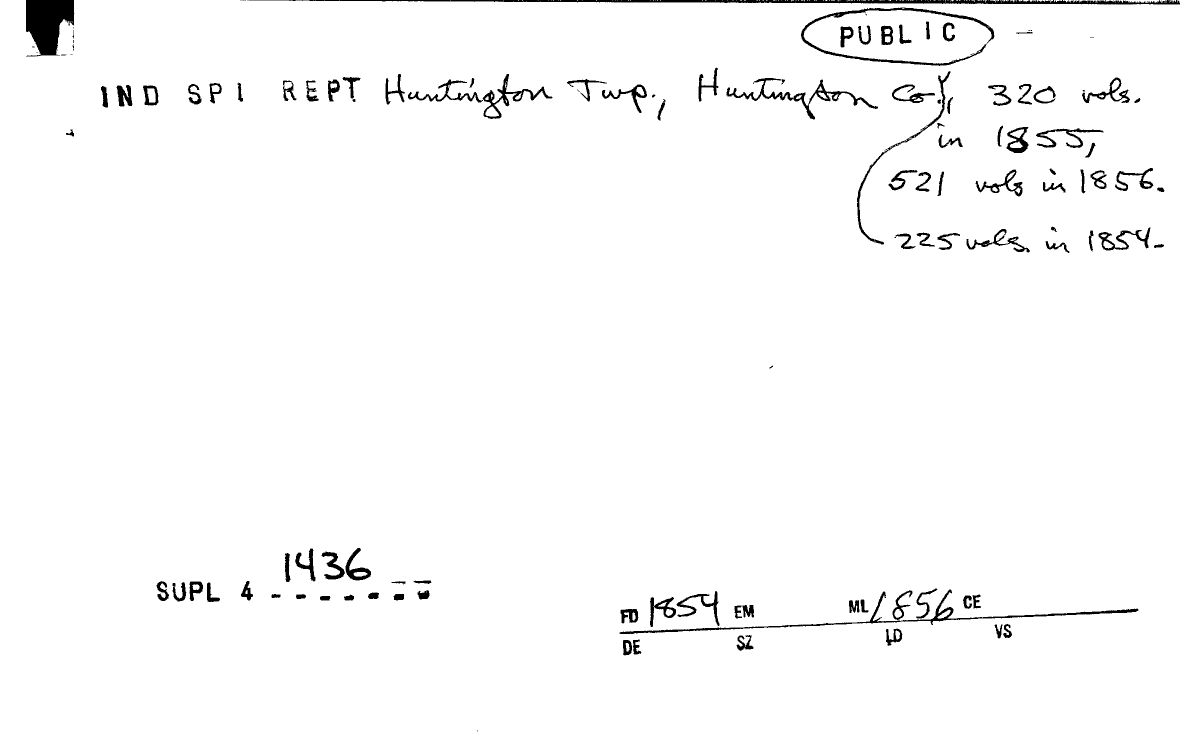 PUBLIC –
IND SPI REPT Huntington Twp., Huntington Co., 320 vols.
in 1855,
521 vols in 1856.
225 vols. in 1854-
1436
SUPL 4 - - - - - - -
FD 1854 EM ML 1856 CE
DE SZ LD VS